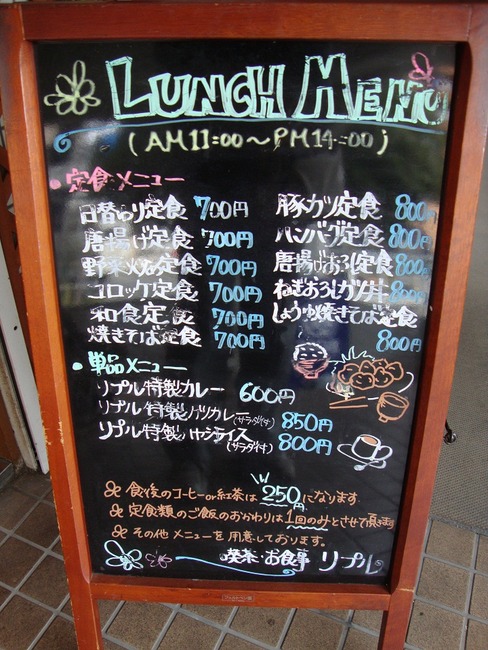 LUNCH MENU
(AM11:00～PM14:00)
・定食メニュー
日替わり定食 700円
唐揚げ定食 700円
野菜炒め定食 700円
コロッケ定食 700円
和食定食 700円
焼きそば定食 700円
豚カツ定食 800円
ハンバグ定食 800円
唐揚げおろし定食 800円
ねぎおろしカツ丼 800円
しょうゆ焼きそば定食
800円
・単品メニュー
リプル特製カレー 600円
リプル特製カツカレー(サラダ付) 850円
リプル特製ハヤシライス(サラダ付) 800円
食後のコーヒーor紅茶は250円になります
定食類のご飯のおかわりは1回のみとさせて頂きます
その他メニューを用意しております。
喫茶・お食事 リプル